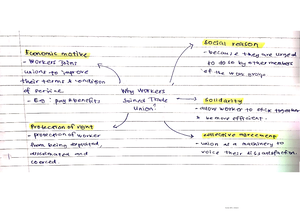 Economic motive
- Workers joins
unions to improve
their terms & condition
of service.
- Eg : pay & benefits
Social reason
- because they are urged
to do so by other members
of the work group
Why Workers
Joined Trade
Union?
Solidarity
- allow worker to stick together
& be more efficient.
Protection of right
- protection of worker
from being exploited,
and
covered
collective agreement
- union as a machinery to
voice their dissatisfaction.